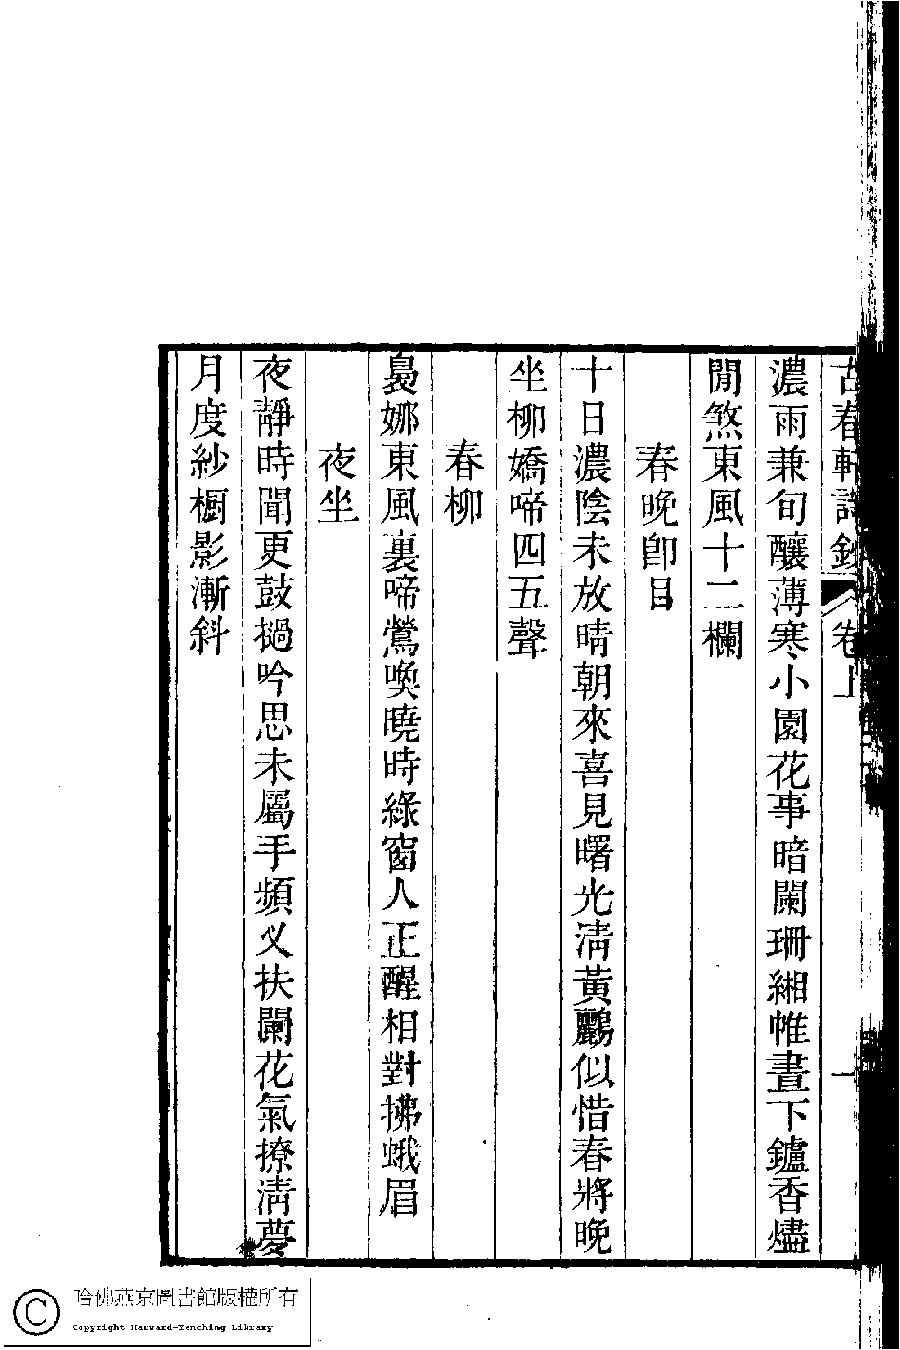 古春軒詩鈔 卷上 一
濃雨兼旬釀薄寒小園花事暗闌珊緗帷晝下鑪香燼
閒煞東風十二欄
春晚卽目
十日濃陰未放晴朝來喜見曙光淸黃鸝似惜春將晚
坐柳嬌啼四五聲
春柳
裊娜東風裏啼鶯喚曉時綠窗人正醒相對拂蛾眉
夜坐
夜靜時聞更鼓撾吟思未屬手頻义扶闌花氣撩淸夢
月度紗櫥影漸斜
哈佛燕京圖書館版權所有
Copyright Harvard-Yenching Library